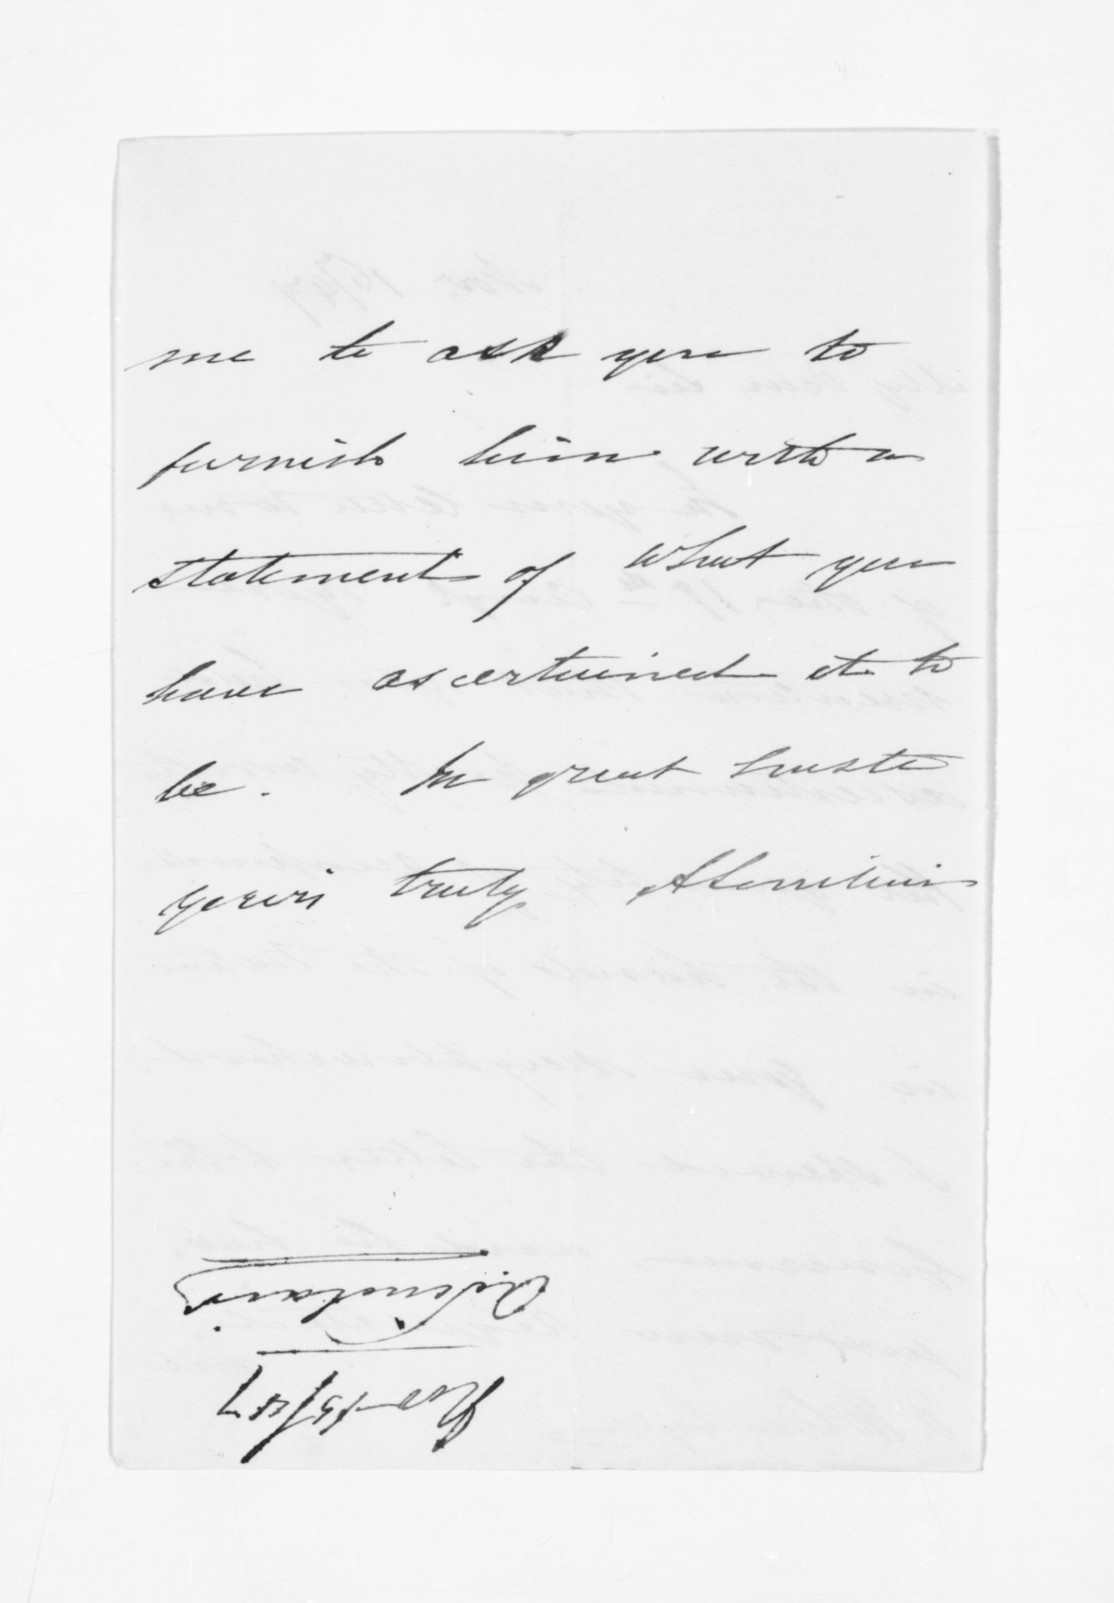 me to ask you to
furnish him with a
statement of what you
have ascertained it to
be. In great haste
yours truly ASinclair
A. Sinclair
Nov 15/47